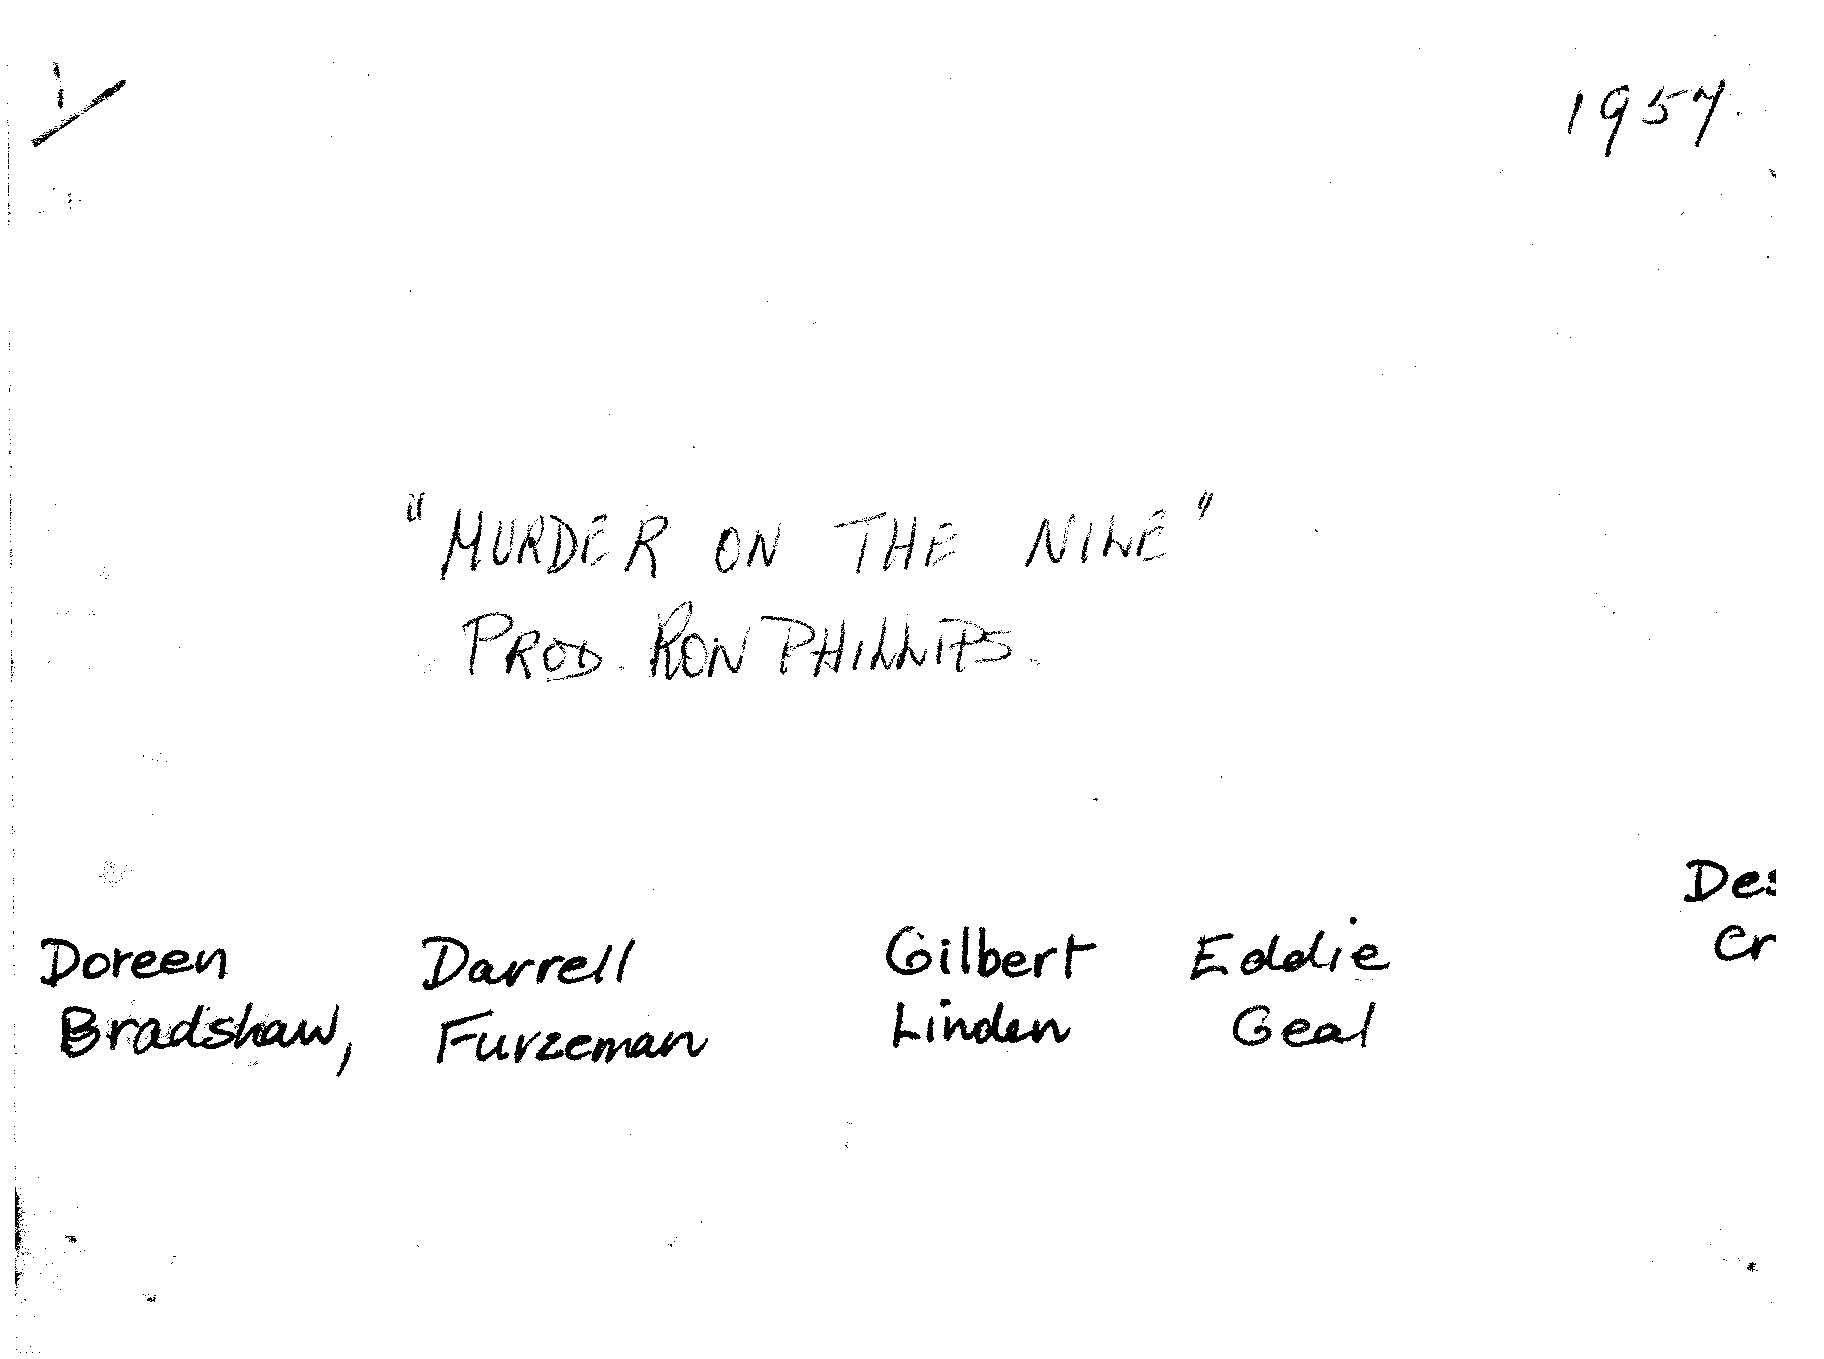 1/
1957.
"MURDER ON THE NILE"
PROD. RON PHILLIPS.
Doreen Darrell Gilbert Eddie Des
Bradshaw, Furzeman Linden Geal Cr